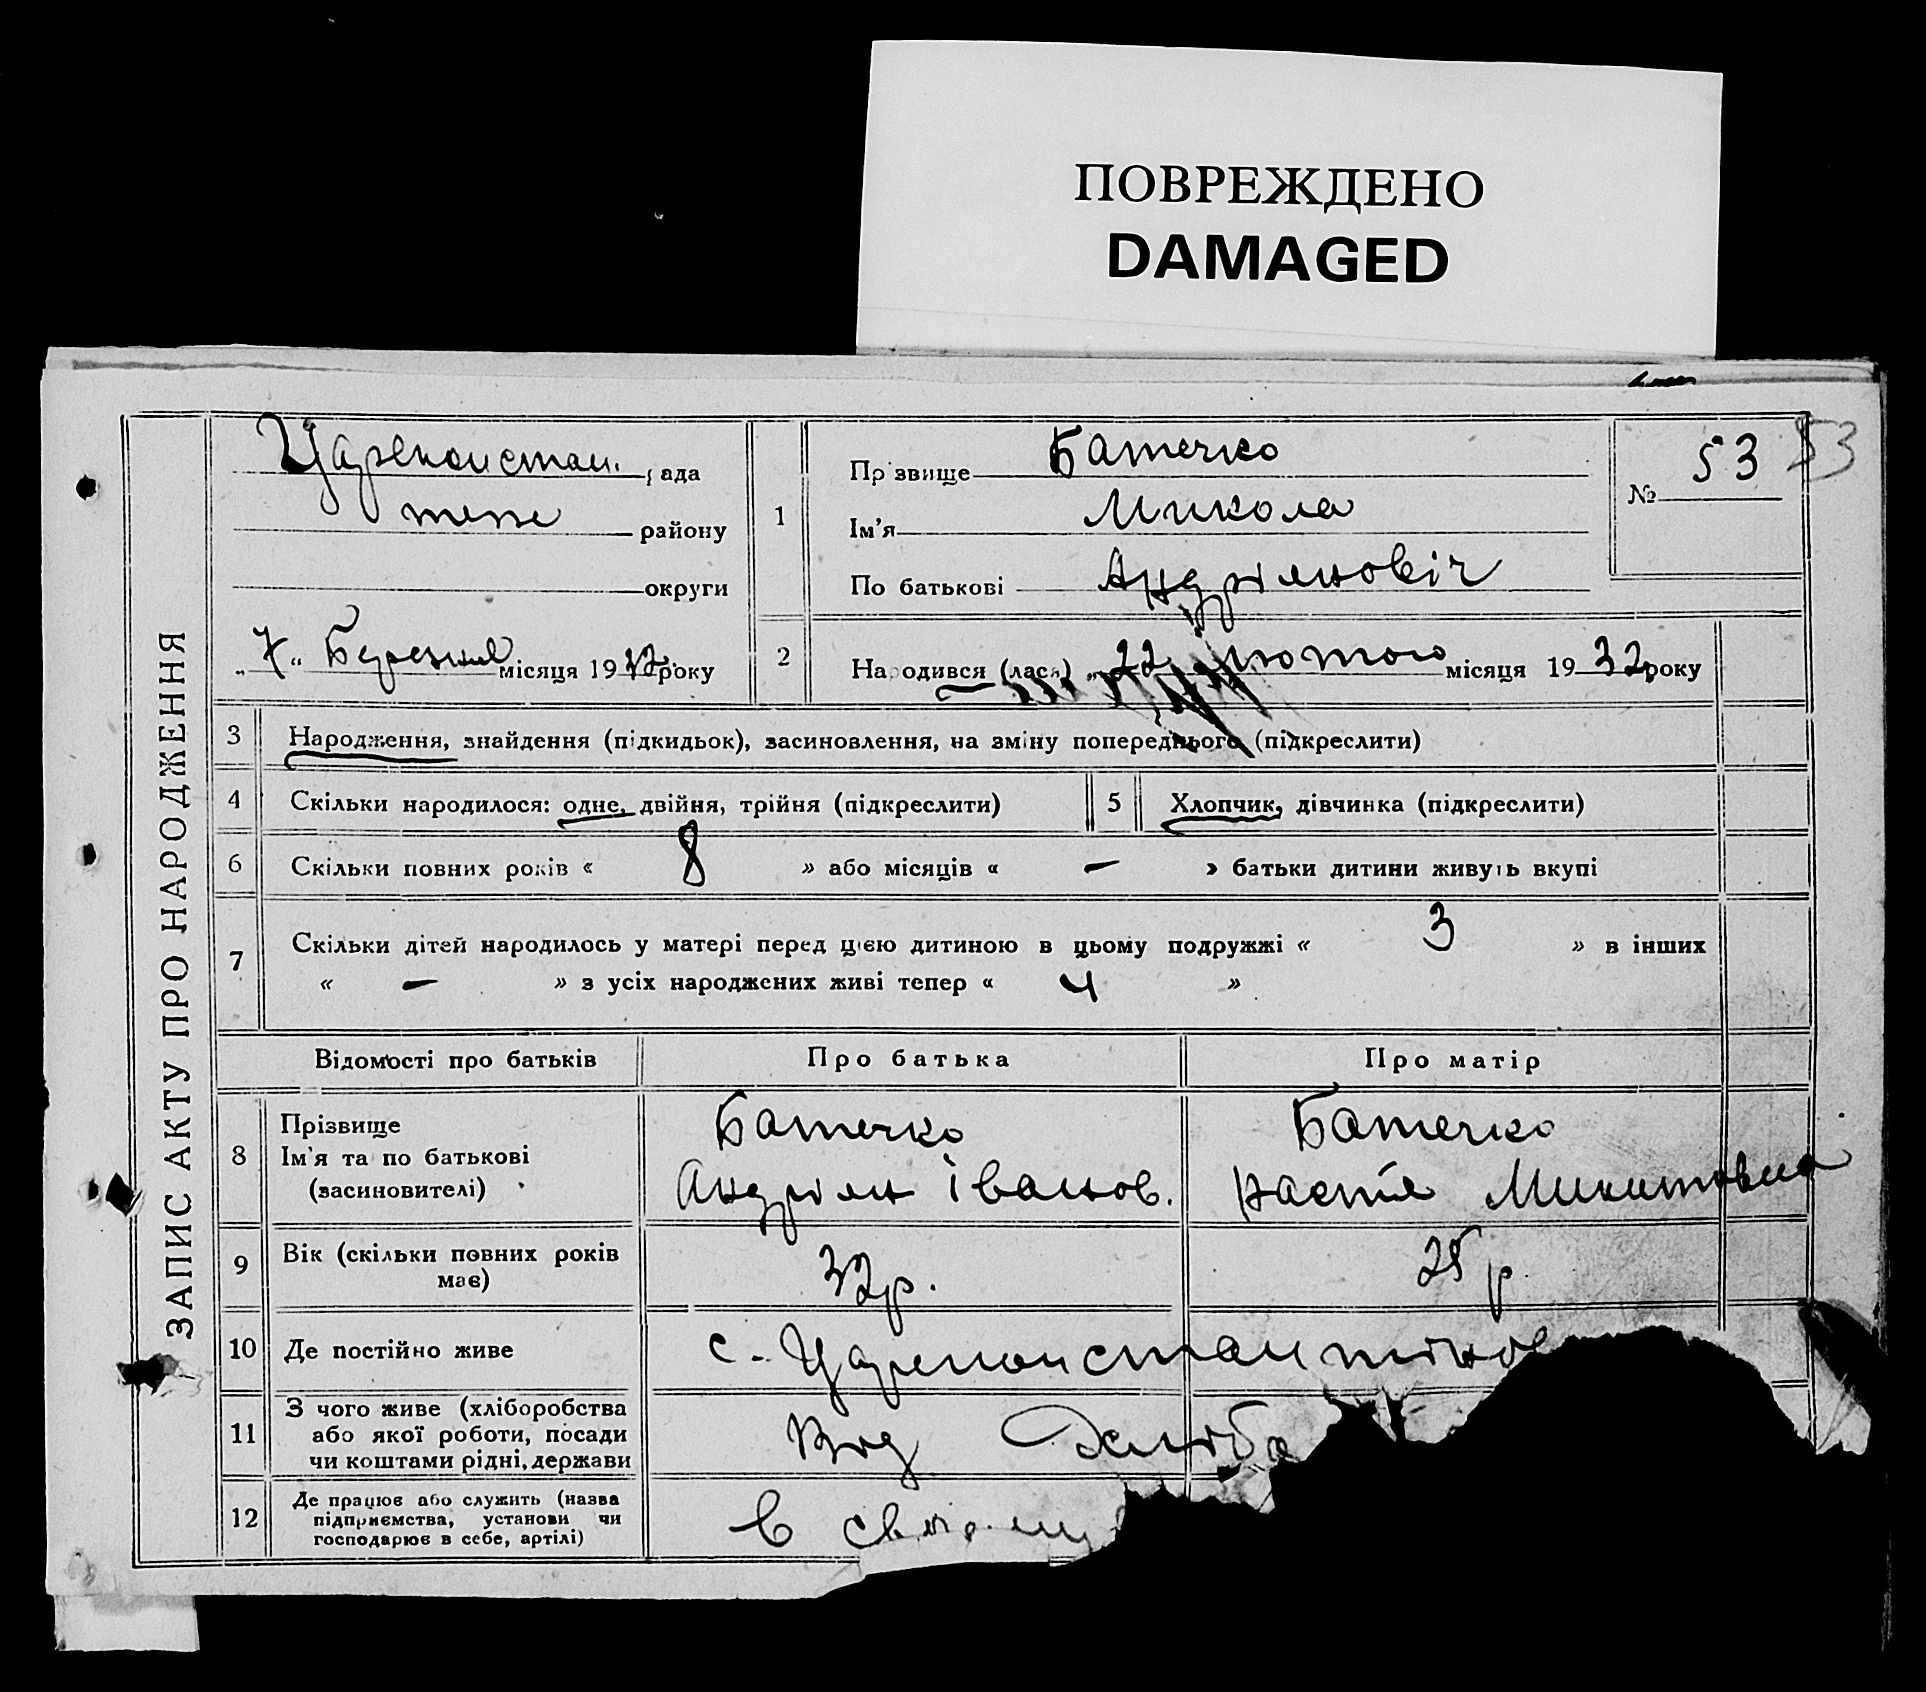 ПОВРЕЖДЕНО
DAMAGED
ЗАПИС АКТУ ПРО НАРОДЖЕННЯ
Цареконстан. рада
району
округи
„7“ Березня місяця 1932 року
1
Прізвище Батечко
Ім’я Микола
По батькові Андріяновіч
№ 53
53
2
Народився (лася) „22 лютого місяця 1932 року
3 Народження, знайдення (підкидьок), засиновлення, на зміну попереднього (підкреслити)
4 Скільки народилося: одне, двійня, трійня (підкреслити)
5 Хлопчик, дівчинка (підкреслити)
6 Скільки повних років « 8 » або місяців « — » батьки дитини живуть вкупі
7 Скільки дітей народилось у матері перед цією дитиною в цьому подружжі « 3 » в інших
« — » з усіх народжених живі тепер « 4 »
Відомості про батьків Про батька Про матір
8 Прізвище
Ім’я та по батькові
(засиновителі)
Батечко
Андріян Іванов.
Батечко
Настя Микитовна
9 Вік (скільки повних років
має)
32 р.
25 р.
10 Де постійно живе
с. Цареконстантінов
11 З чого живе (хліборобства
або якої роботи, посади
чи коштами рідні, держави
Від хліба
12 Де працює або служить (назва
підприємства, установи чи
господарює в себе, артілі)
в